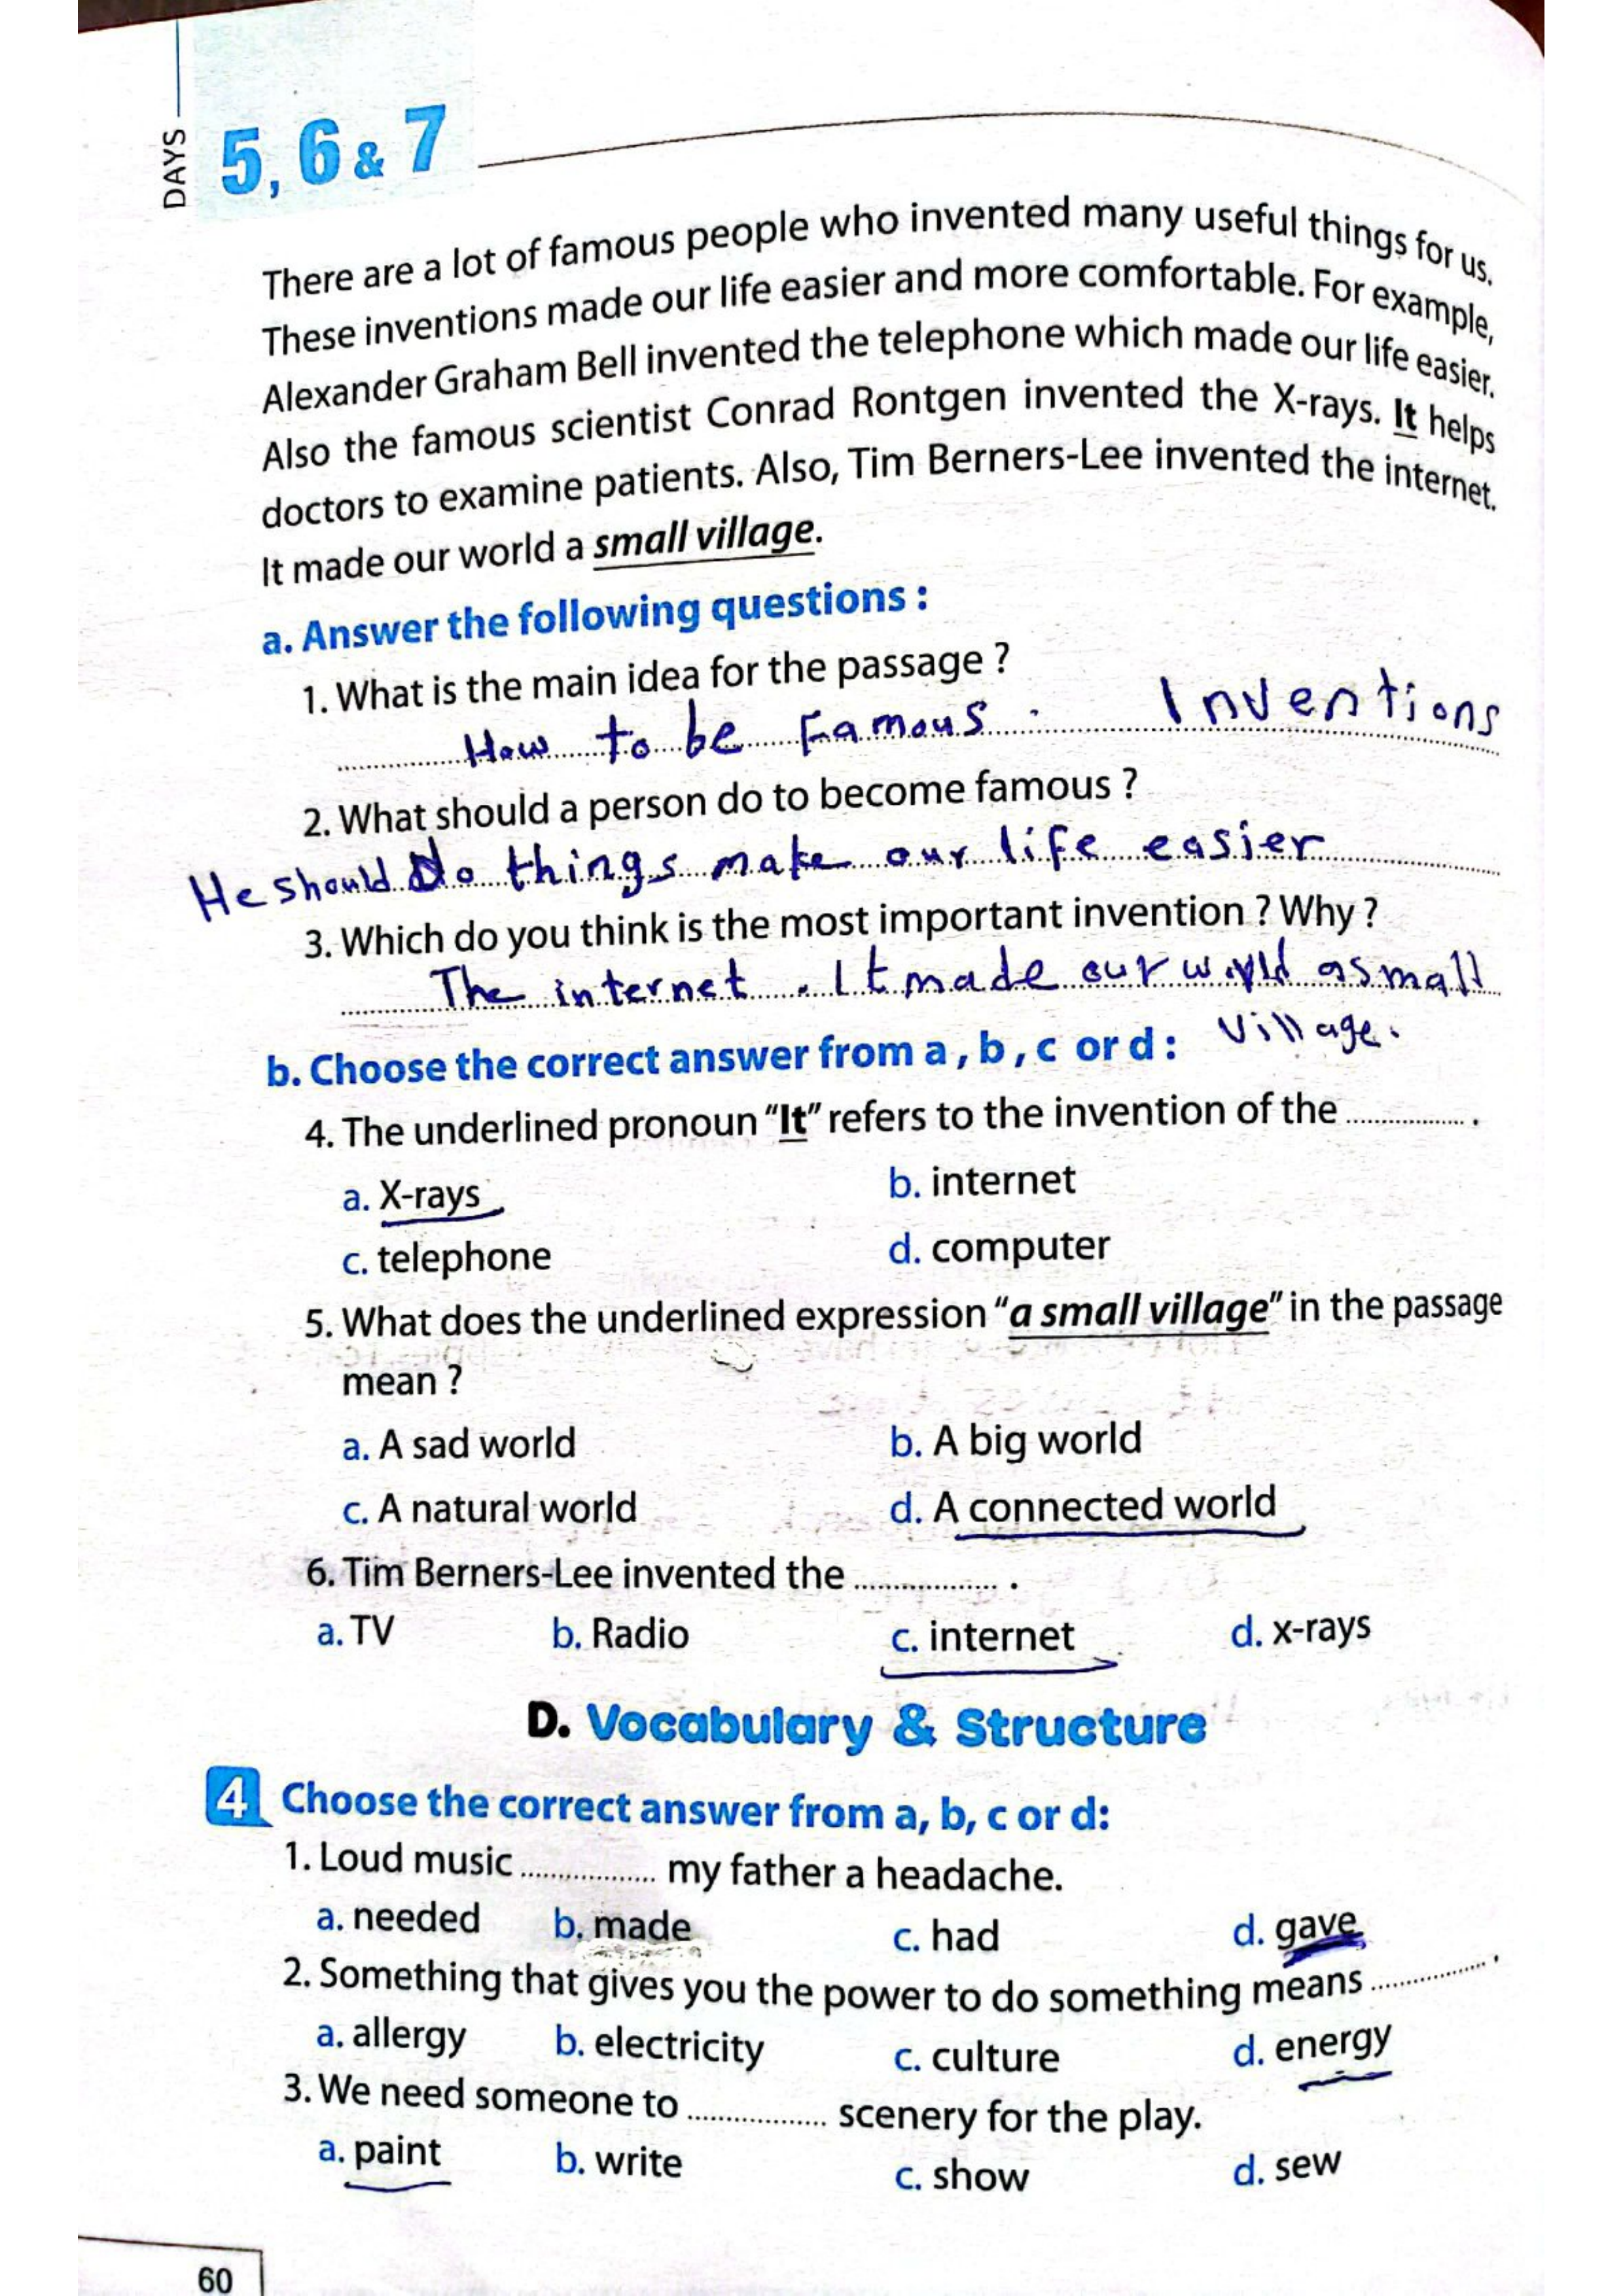 DAYS
5, 6 & 7
There are a lot of famous people who invented many useful things for us.
These inventions made our life easier and more comfortable. For example,
Alexander Graham Bell invented the telephone which made our life easier.
Also the famous scientist Conrad Rontgen invented the X-rays. It helps
doctors to examine patients. Also, Tim Berners-Lee invented the internet.
It made our world a small village.
a. Answer the following questions :
1. What is the main idea for the passage ?
How to be Famous. Inventions
2. What should a person do to become famous ?
He should Do things make our life easier
3. Which do you think is the most important invention ? Why ?
The internet. It made our world a small
village.
b. Choose the correct answer from a , b , c or d :
4. The underlined pronoun “It” refers to the invention of the .............. .
a. X-rays b. internet
c. telephone d. computer
5. What does the underlined expression “a small village” in the passage
mean ?
a. A sad world b. A big world
c. A natural world d. A connected world
6. Tim Berners-Lee invented the ................. .
a. TV b. Radio c. internet d. x-rays
D. Vocabulary & Structure
4 Choose the correct answer from a, b, c or d:
1. Loud music ................. my father a headache.
a. needed b. made c. had d. gave
2. Something that gives you the power to do something means .............. .
a. allergy b. electricity c. culture d. energy
3. We need someone to ................. scenery for the play.
a. paint b. write c. show d. sew
60